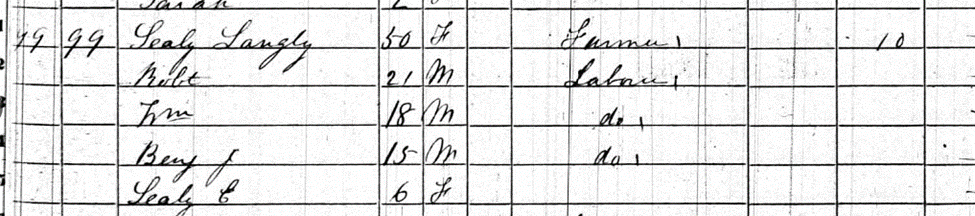 Sarah
99 99 Sealy Langly 50 F Farmer 10
Robt 21 M Labour
Wm 18 M do
Benj J 15 M do
Sealy E 6 F